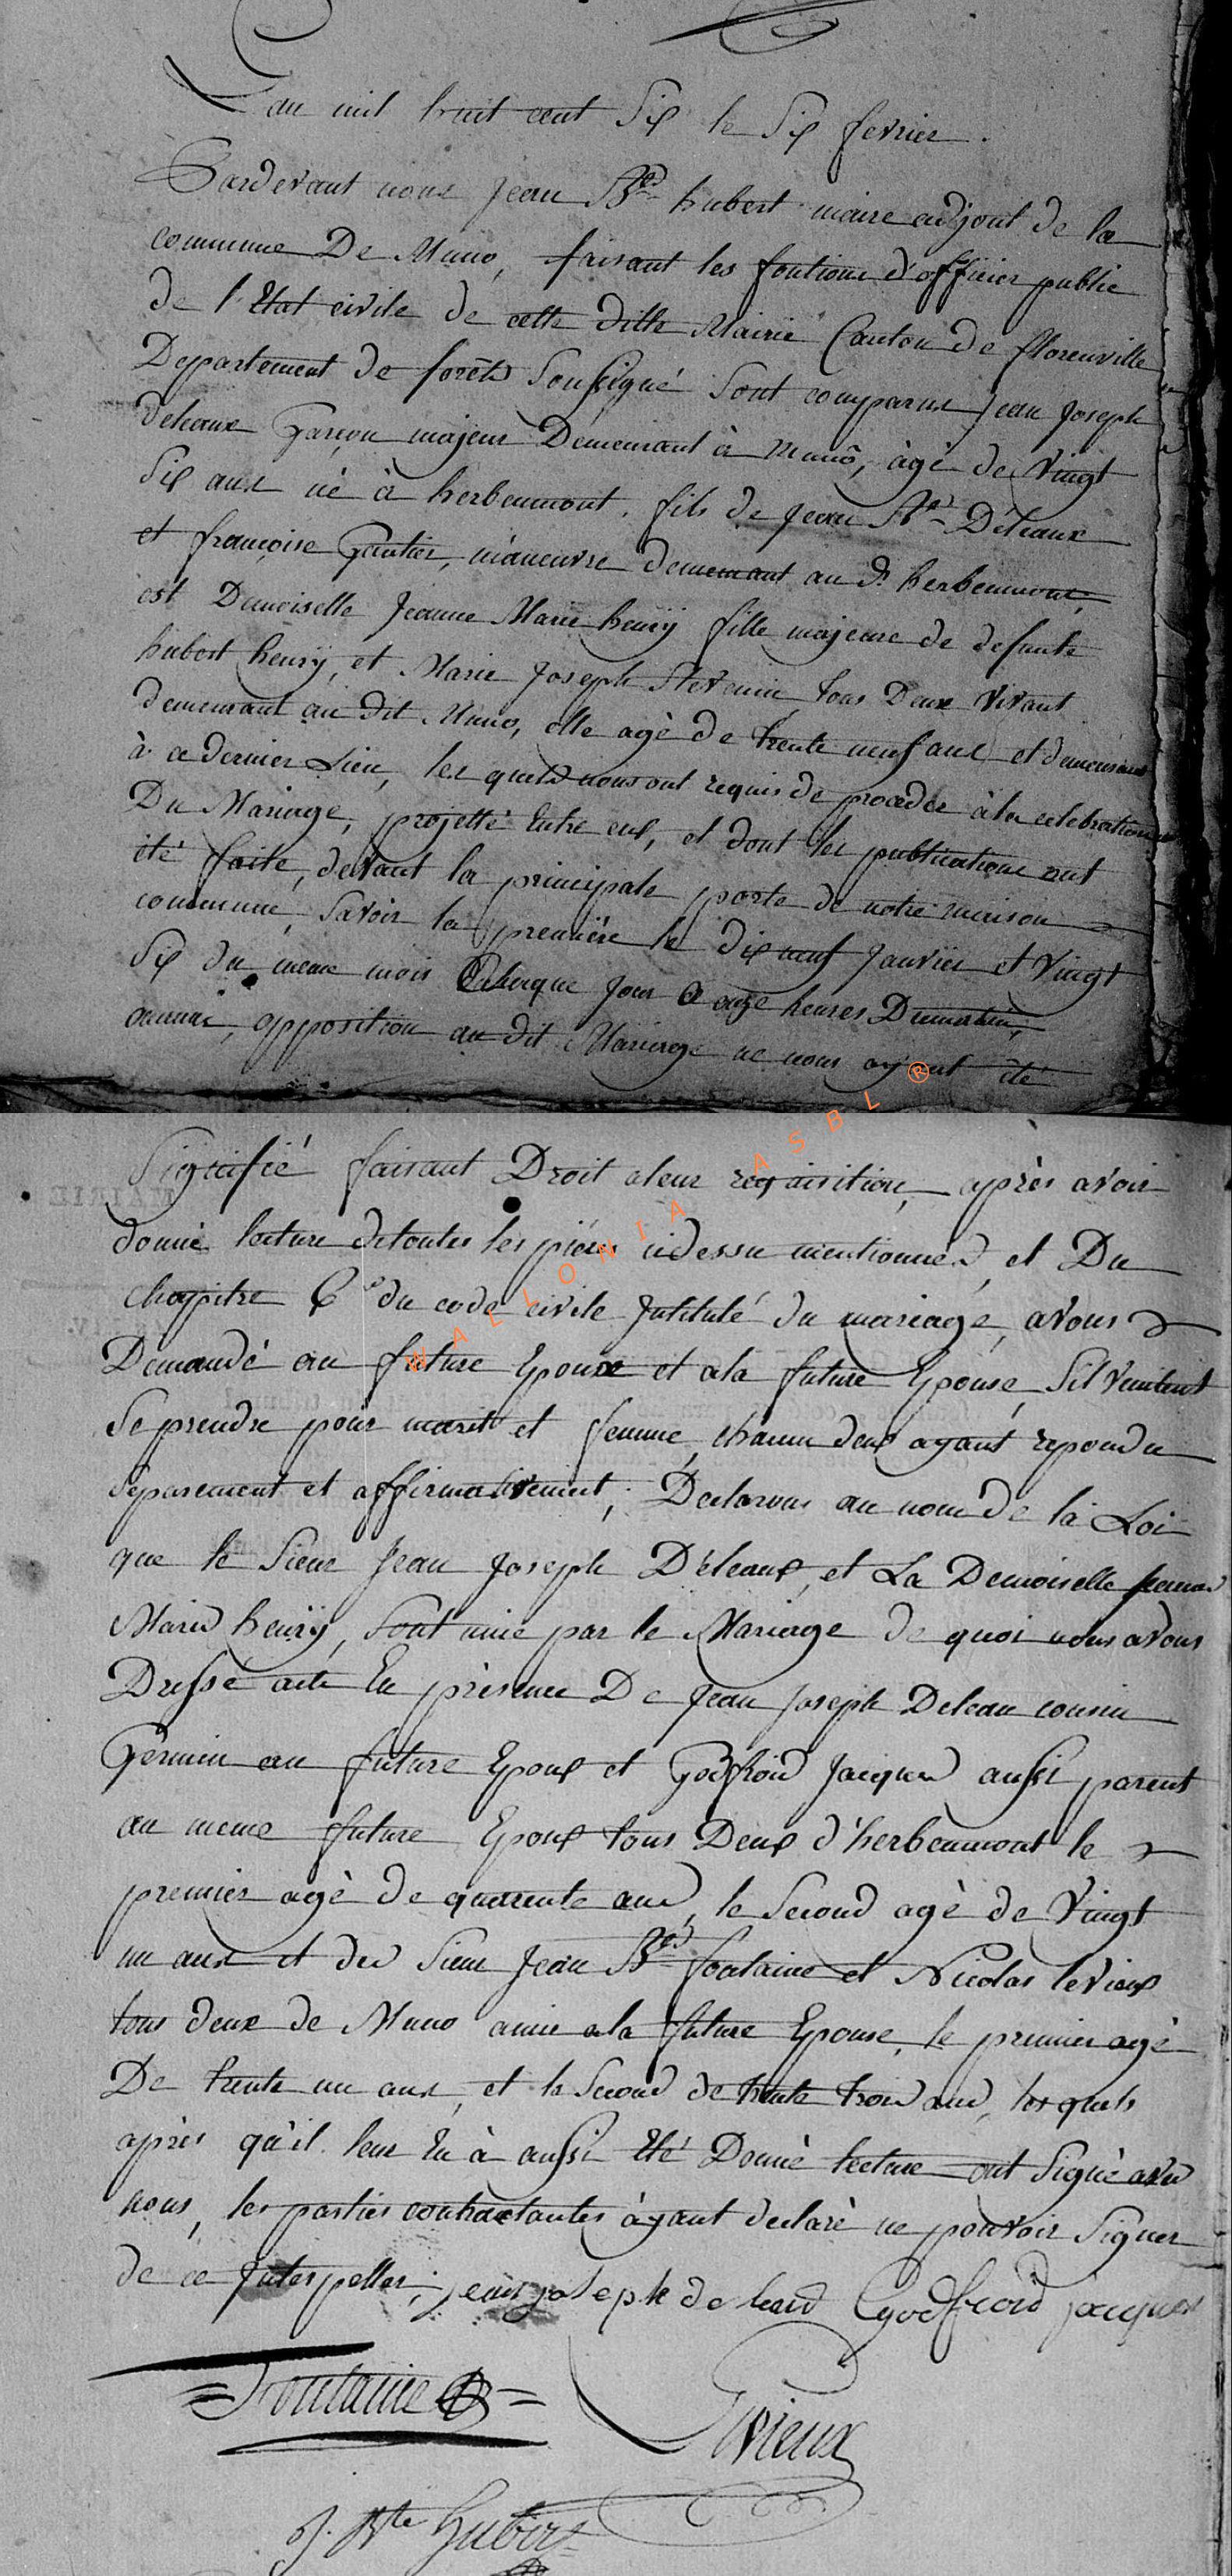 L'an mil huit cent Six le Six fevrier.
Pardevant nous Jean Bte hubert maire adjout de la
commune De Muno, faisant les fontions d'officier public
de l'Etat civile de cette ditte Mairie Canton de florenville
Departement de forêts Soussigné Sont comparus Jean Joseph
Deleaux Garçon majeur Demeurant à Muno, àgé de Vingt
Six ans né à herbeumont, fils de Jean Bte Déleaux
et françoise Gautier, maneuvre demeurant au dt herbeumont,
est Demoiselle Jeanne Marie henrÿ fille majeure de defunte
hubert henrÿ, et Marie Joseph Stevenin tous Deux Vivant
demeurant au dit Muno, elle agé de trente neuf ans et demeurant
à ce dernier Lieu, les quels nous ont requis de procedée à la celebration
Du Mariage, projetté Entre eux, et dont les publications ont
été faite, devant la principale porte de notre maison
commune, Savoir la première le dix neuf Janvier et Vingt
Six du meme mois chaque Jour à onze heures Dumatin,
aucune, opposition au dit Mariage ne nous ayant été
Signifié faisant Droit aleur requisition, après avoir
donné lecture detoutes les piéces cidessu mentionnes, et Du
chapitre 6e du code civile Jntitulé du mariage, avons
Demandé au future Epoux et ala future Epouse, Sil veulent
Se prendre pour marit et femme, chacun deux ayant repondu
séparement et affirmativement, Déclarons au nom de la Loi
que le Sieur Jean Joseph Déleaux, et La Demoiselle Jeanne
Marie henrÿ, Sont unie par le Mariage de quoi nous avons
Dressé acte En présence De Jean Joseph Deleau cousin
Germin au future Epoux et Godfroid Jacques aussi parent
au meme future Epoux tous Deux d'herbeumont le
premier agé de quarente ans, le Second agé de Vingt
un ans et des Sieur Jean Bte fontaine et Nicolas levieux
tous deux de Muno amie ala future Epouse, le premier agé
De trente un ans, et le Second de trente trois ans, les quels
après qu'il leur En à aussi Eté Donné lecture ont Signé avec
nous, les parties contractantes àyant declaré ne pouvoir Signer
de ce Jnterpeller, jean joseph de leau Godfroid jacques
Fontaine
Levieux
J. Bte Hubert
WALLONIA ASBL ®